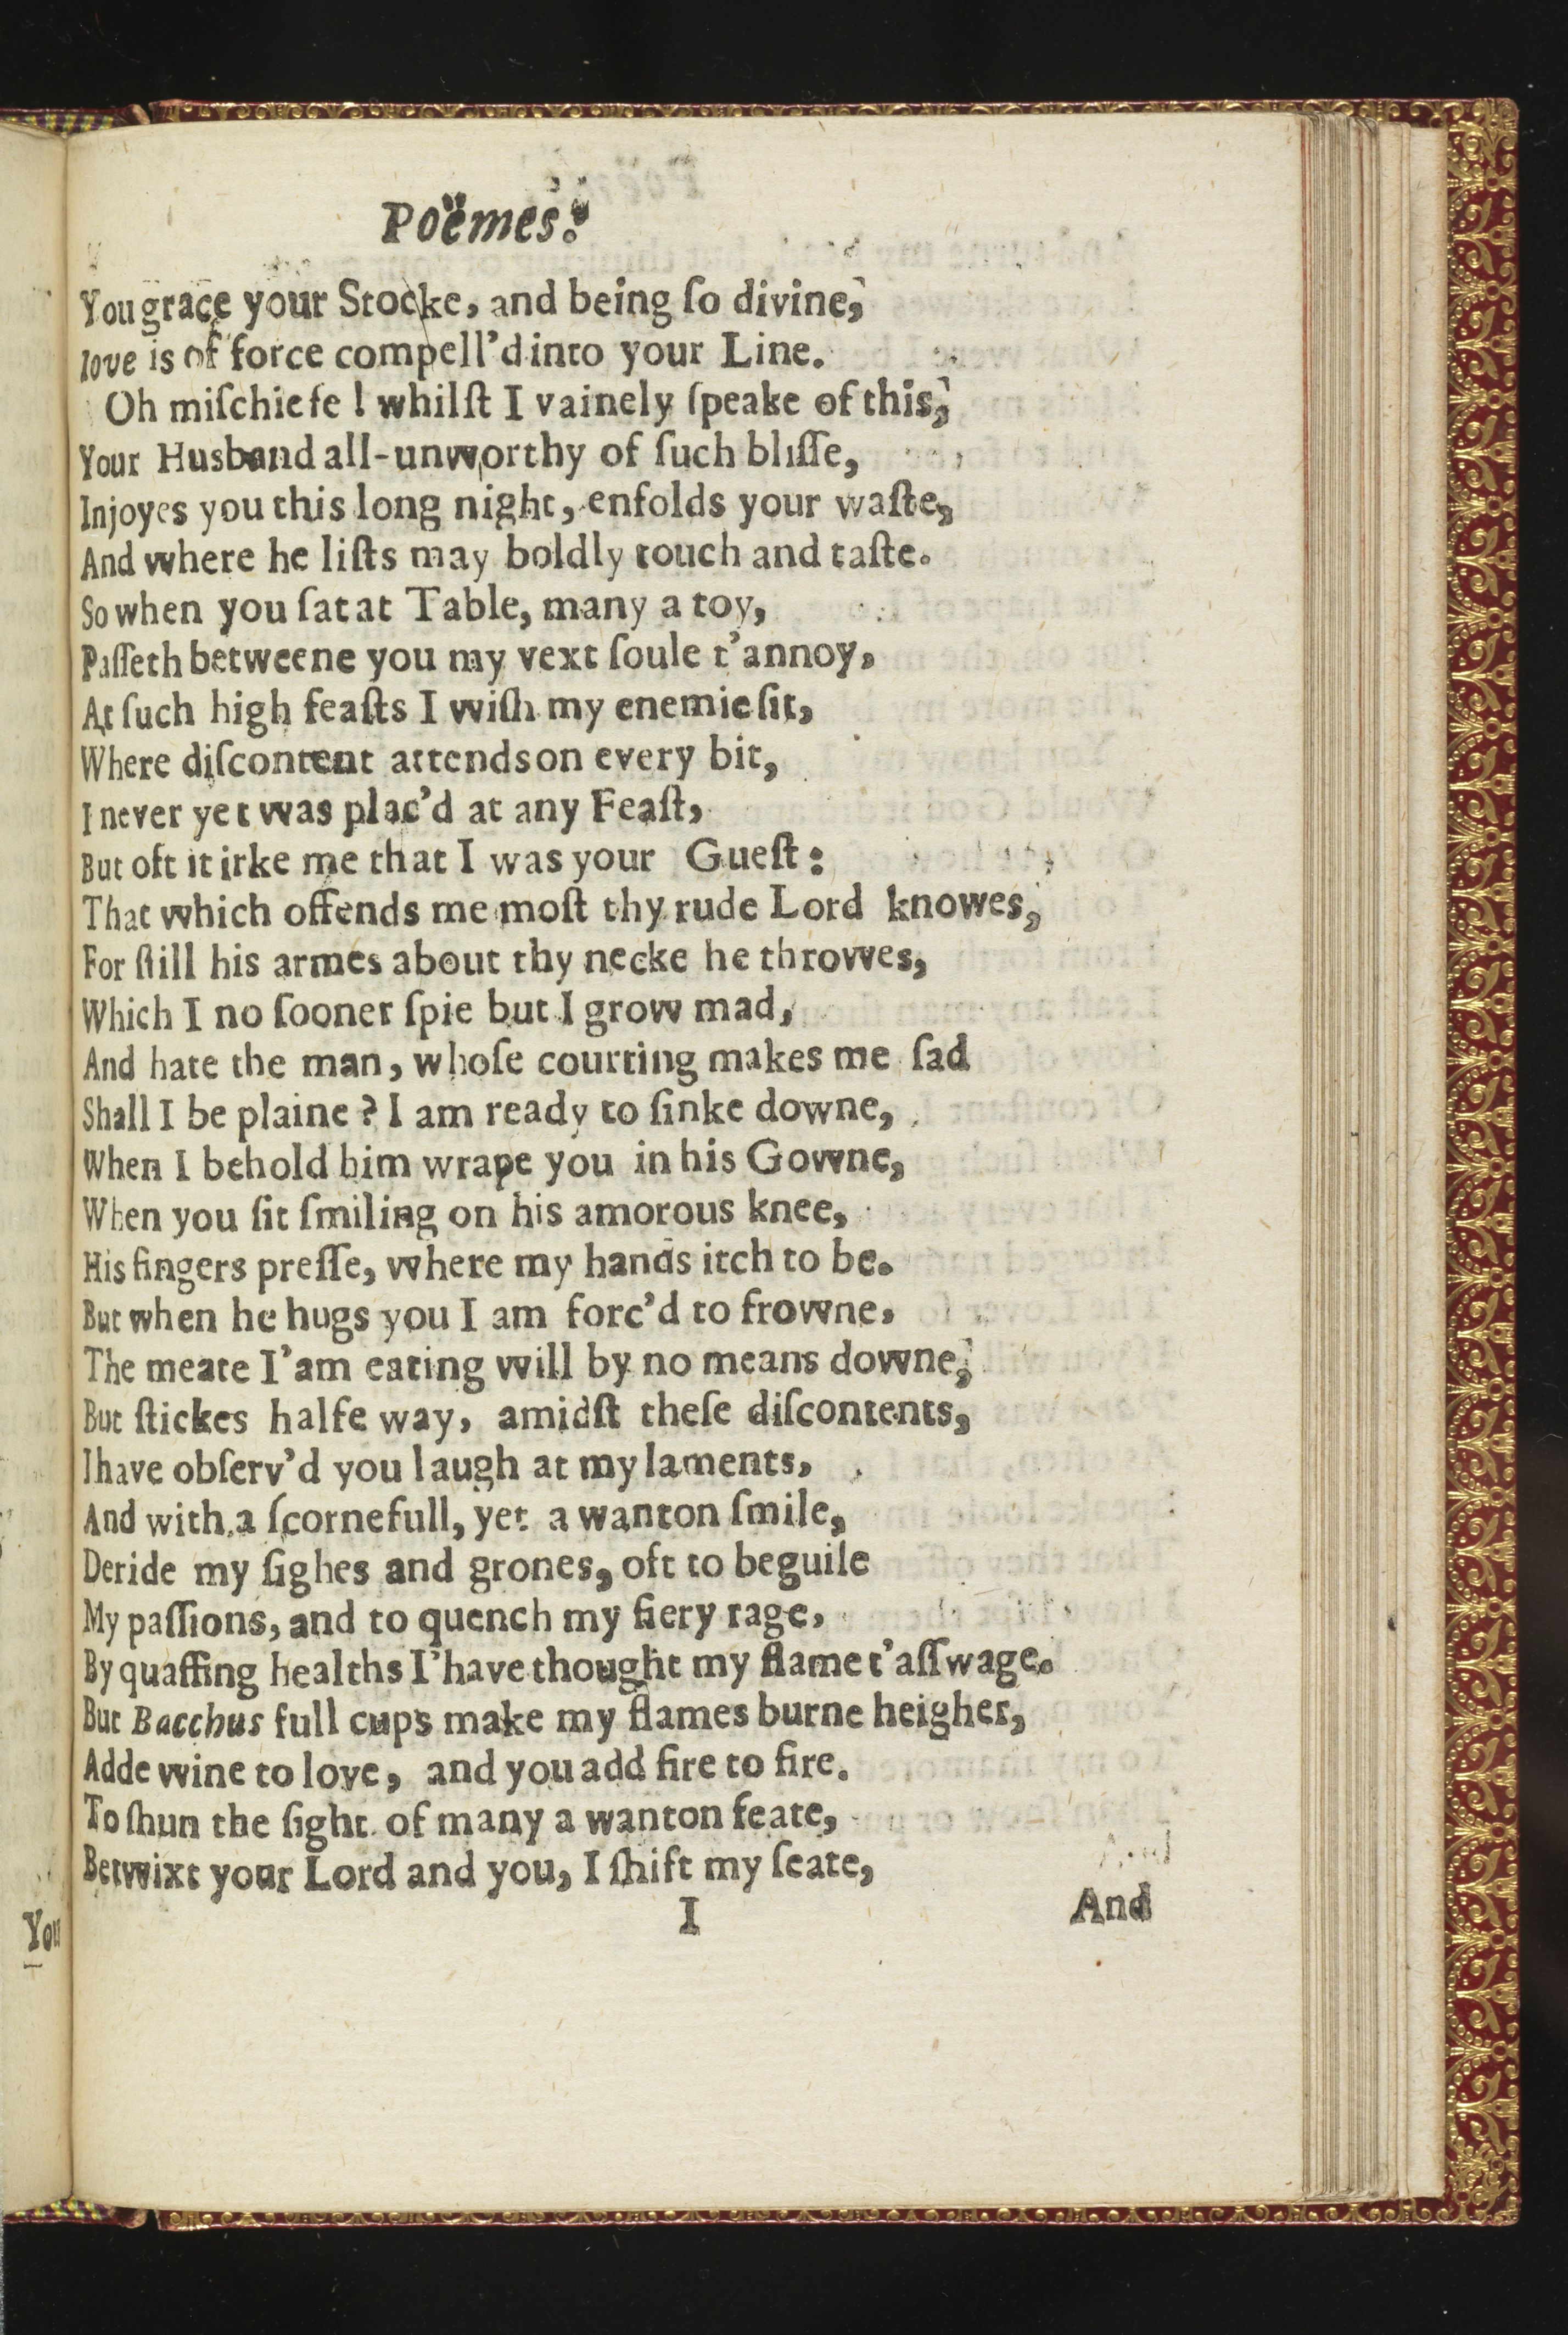 Poëmes.
You grace your Stocke, and being ſo divine,
Iove is of force compell'd into your Line.
Oh miſchiefe! whilſt I vainely ſpeake of this,
Your Husband all-unworthy of ſuch bliſſe,
Injoyes you this long night, enfolds your waſte,
And where he liſts may boldly touch and taſte.
So when you ſat at Table, many a toy,
Paſſeth betweene you my vext ſoule t'annoy,
At ſuch high feaſts I wiſh my enemie ſit,
Where diſcontent attends on every bit,
I never yet was plac'd at any Feaſt,
But oft it irke me that I was your Gueſt:
That which offends me moſt thy rude Lord knowes,
For ſtill his armes about thy necke he throwes,
Which I no ſooner ſpie but I grow mad,
And hate the man, whoſe courting makes me ſad
Shall I be plaine? I am ready to ſinke downe,
When I behold him wrape you in his Gowne,
When you ſit ſmiling on his amorous knee,
His fingers preſſe, where my hands itch to be.
But when he hugs you I am forc'd to frowne,
The meate I'am eating will by no means downe,
But ſtickes halfe way, amidſt theſe diſcontents,
I have obſerv'd you laugh at my laments,
And with a ſcornefull, yet a wanton ſmile,
Deride my ſighes and grones, oft to beguile
My paſſions, and to quench my fiery rage,
By quaffing healths I'have thought my flame t'aſſwage.
But Bacchus full cups make my flames burne heigher,
Adde wine to love, and you add fire to fire.
To ſhun the ſight of many a wanton feate,
Betwixt your Lord and you, I ſhift my ſeate,
I And
You